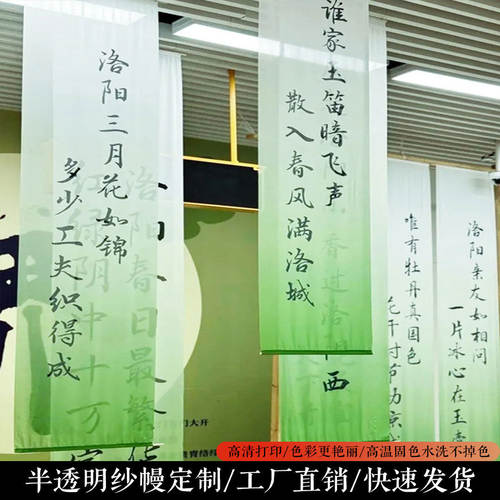 洛阳三月花如锦
多少工夫织得成
洛阳春日最繁华
红绿阴中十万家
谁家玉笛暗飞声
散入春风满洛城
唯有牡丹真国色
花开时节动京
洛阳亲友如相问
一片冰心在玉壶
门大开
高清打印/色彩更艳丽/高温固色水洗不掉色
半透明纱幔定制/工厂直销/快速发货